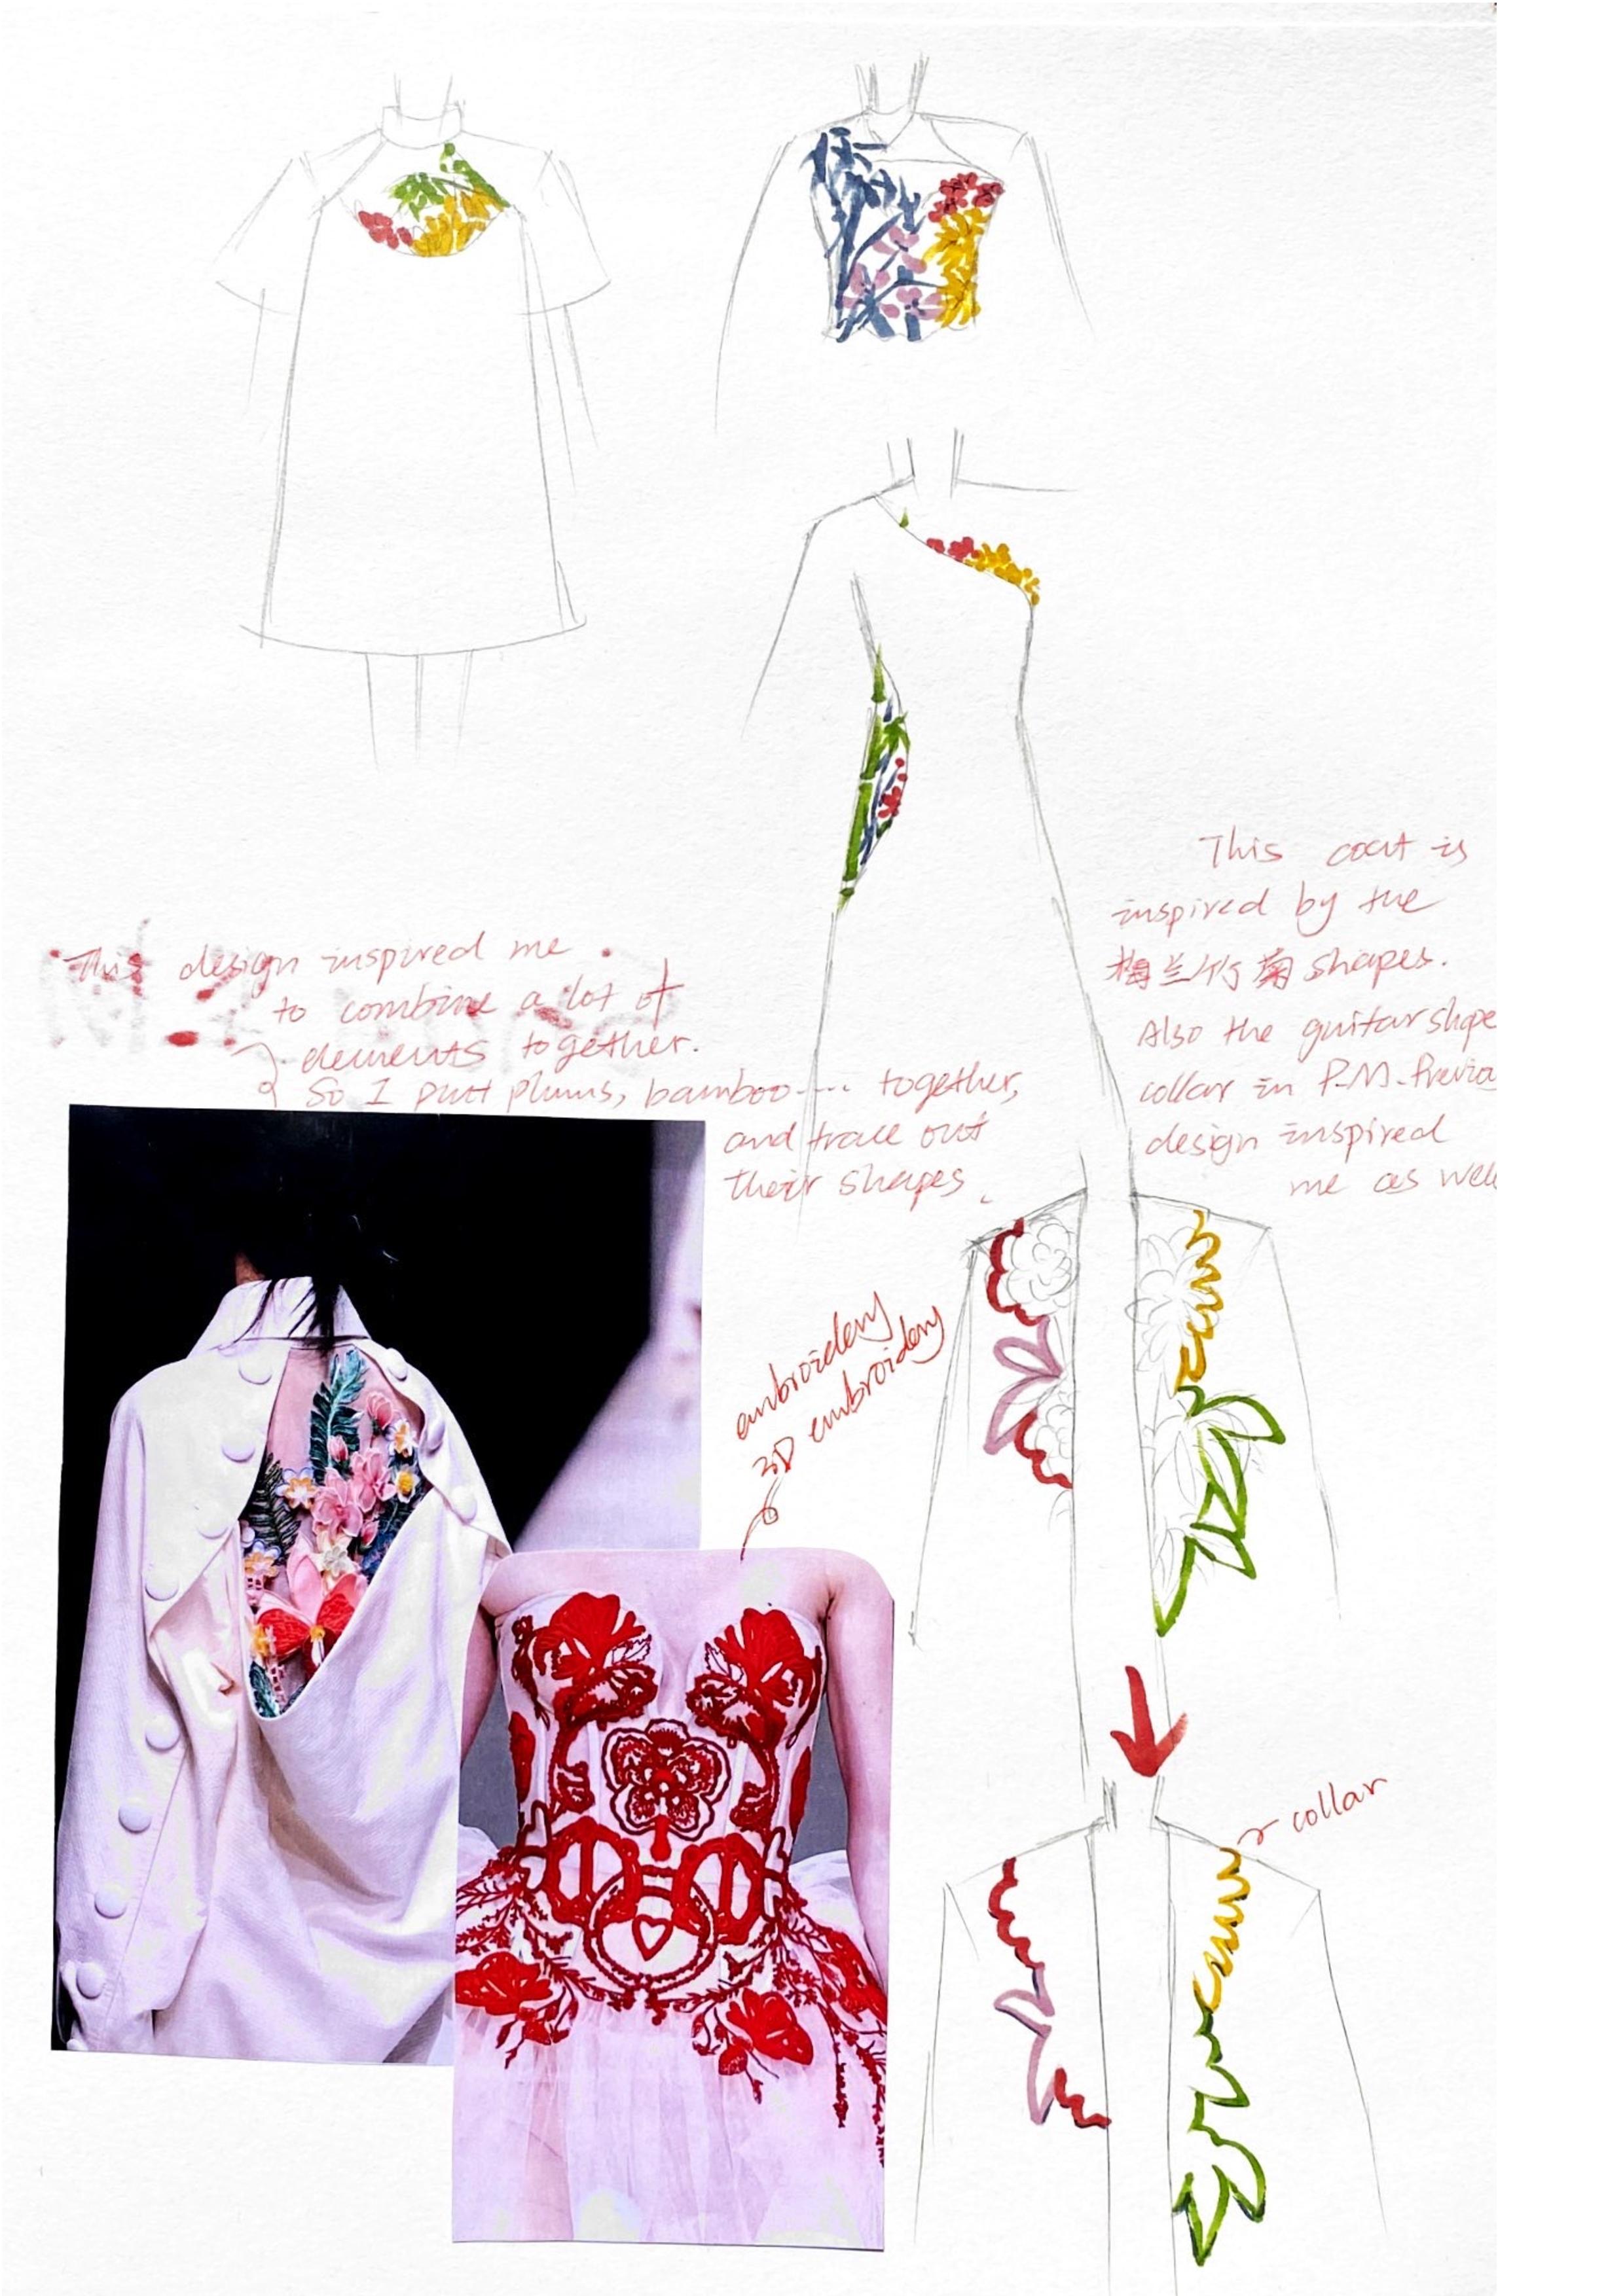 This design inspired me
to combine a lot of
elements together.
So I putt plums, bamboo---- together,
and trace out
their shapes.
This coat is
inspired by the
梅兰竹菊 shapes.
Also the guitar shape
collar in P.M. Previa
design inspired
me as well
embroidery
3D embroidery
collar